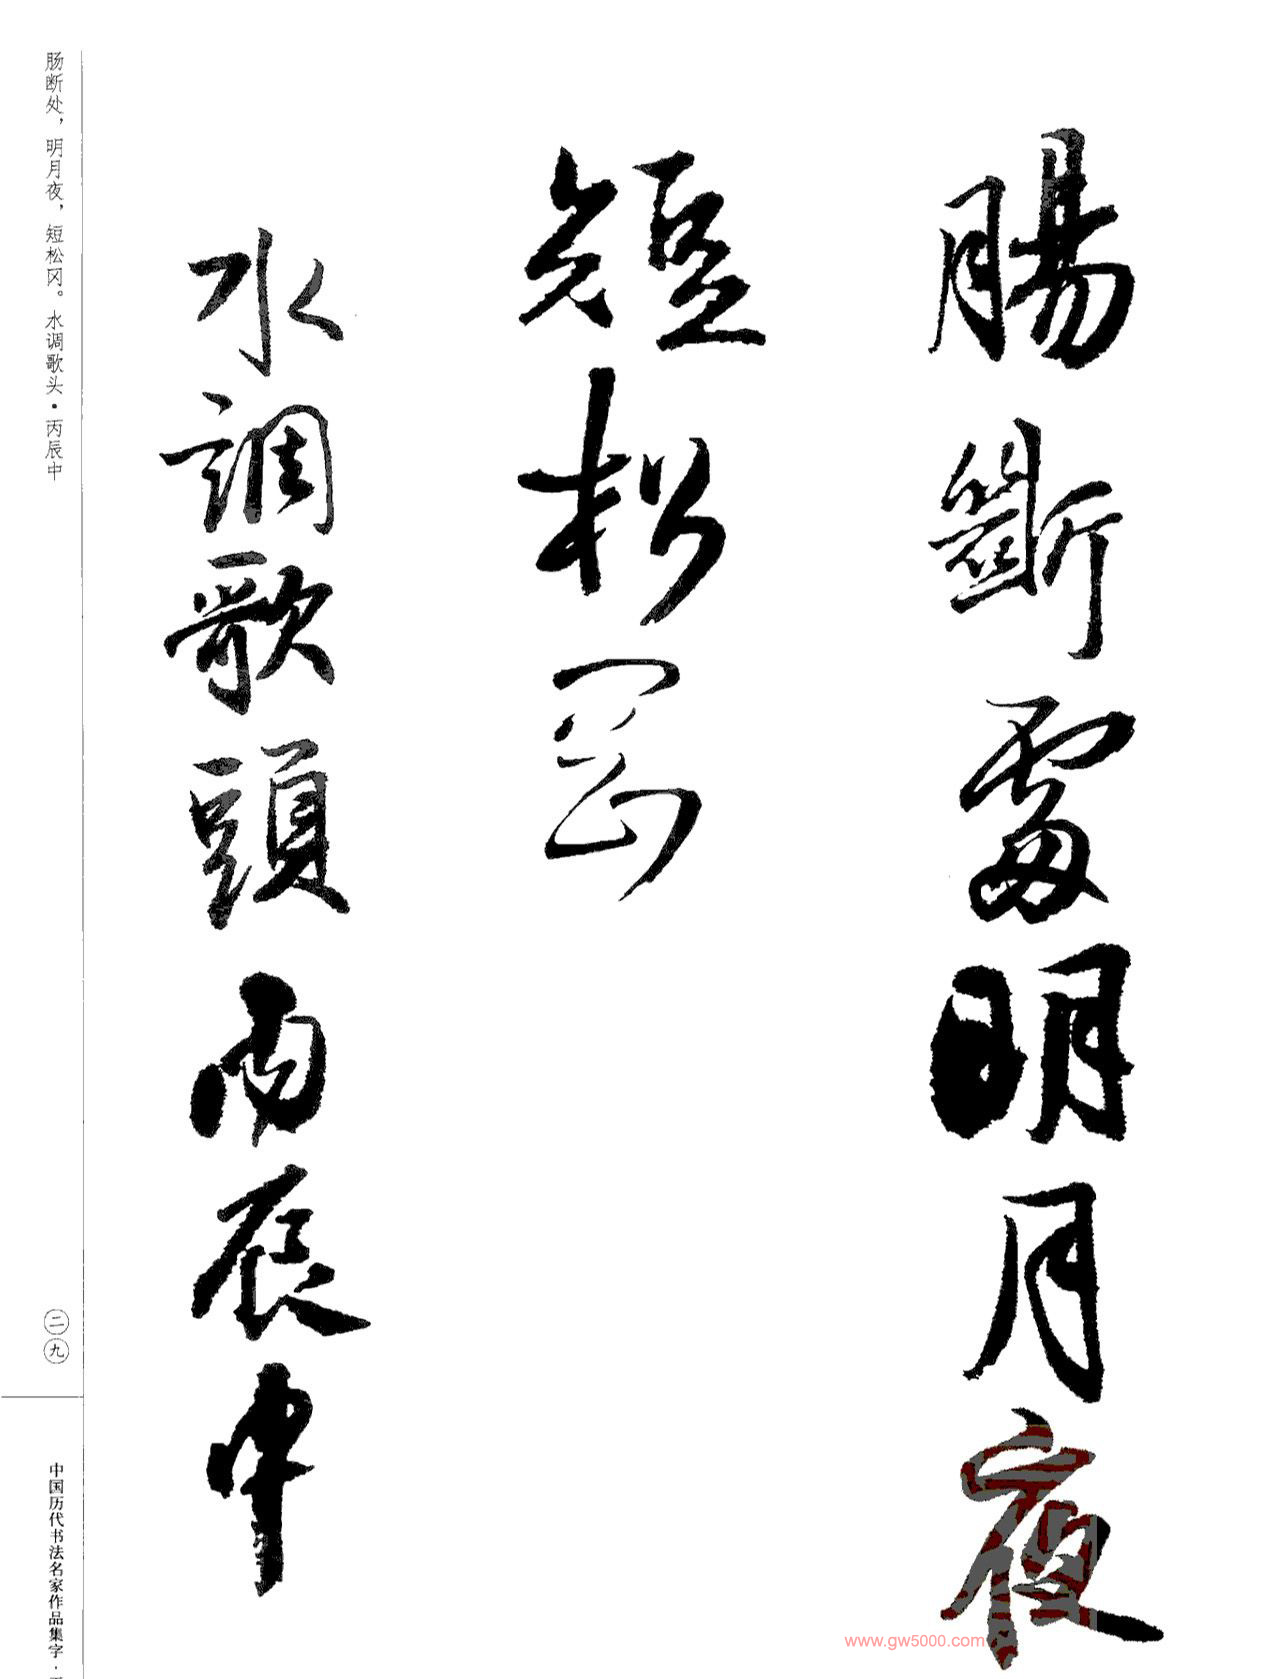 腸斷處明月夜
短松岡
水調歌頭丙辰中
肠断处，明月夜，短松冈。水调歌头·丙辰中
二九
中国历代书法名家作品集字·
www.gw5000.com